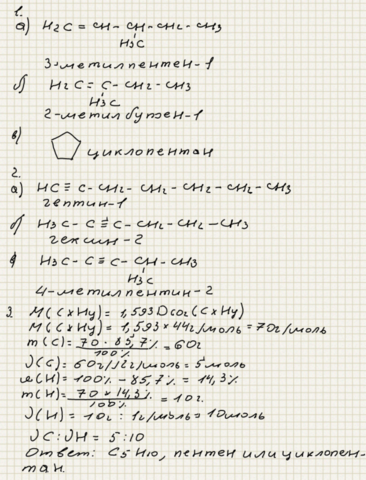 1.
а) H2C = CH - CH - CH2 - CH3
H3C
3-метилпентен-1
б) H2C = C - CH2 - CH3
H3C
2-метилбутен-1
в)
циклопентан
2.
а) HC ≡ C - CH2 - CH2 - CH2 - CH2 - CH3
гептин-1
б) H3C - C ≡ C - CH2 - CH2 - CH3
гексин-2
в) H3C - C ≡ C - CH - CH3
H3C
4-метилпентин-2
3. M(CxHy) = 1,593 D CO2 (CxHy)
M(CxHy) = 1,593 × 44г/моль = 70г/моль
m(C) = 70 · 85,7% / 100% = 60г
ν(C) = 60г/12г/моль = 5моль
ω(H) = 100% - 85,7% = 14,3%
m(H) = 70 × 14,3% / 100% = 10г.
ν(H) = 10г : 1г/моль = 10моль
νC : νH = 5:10
Ответ: C5H10, пентен или циклопен-
тан.